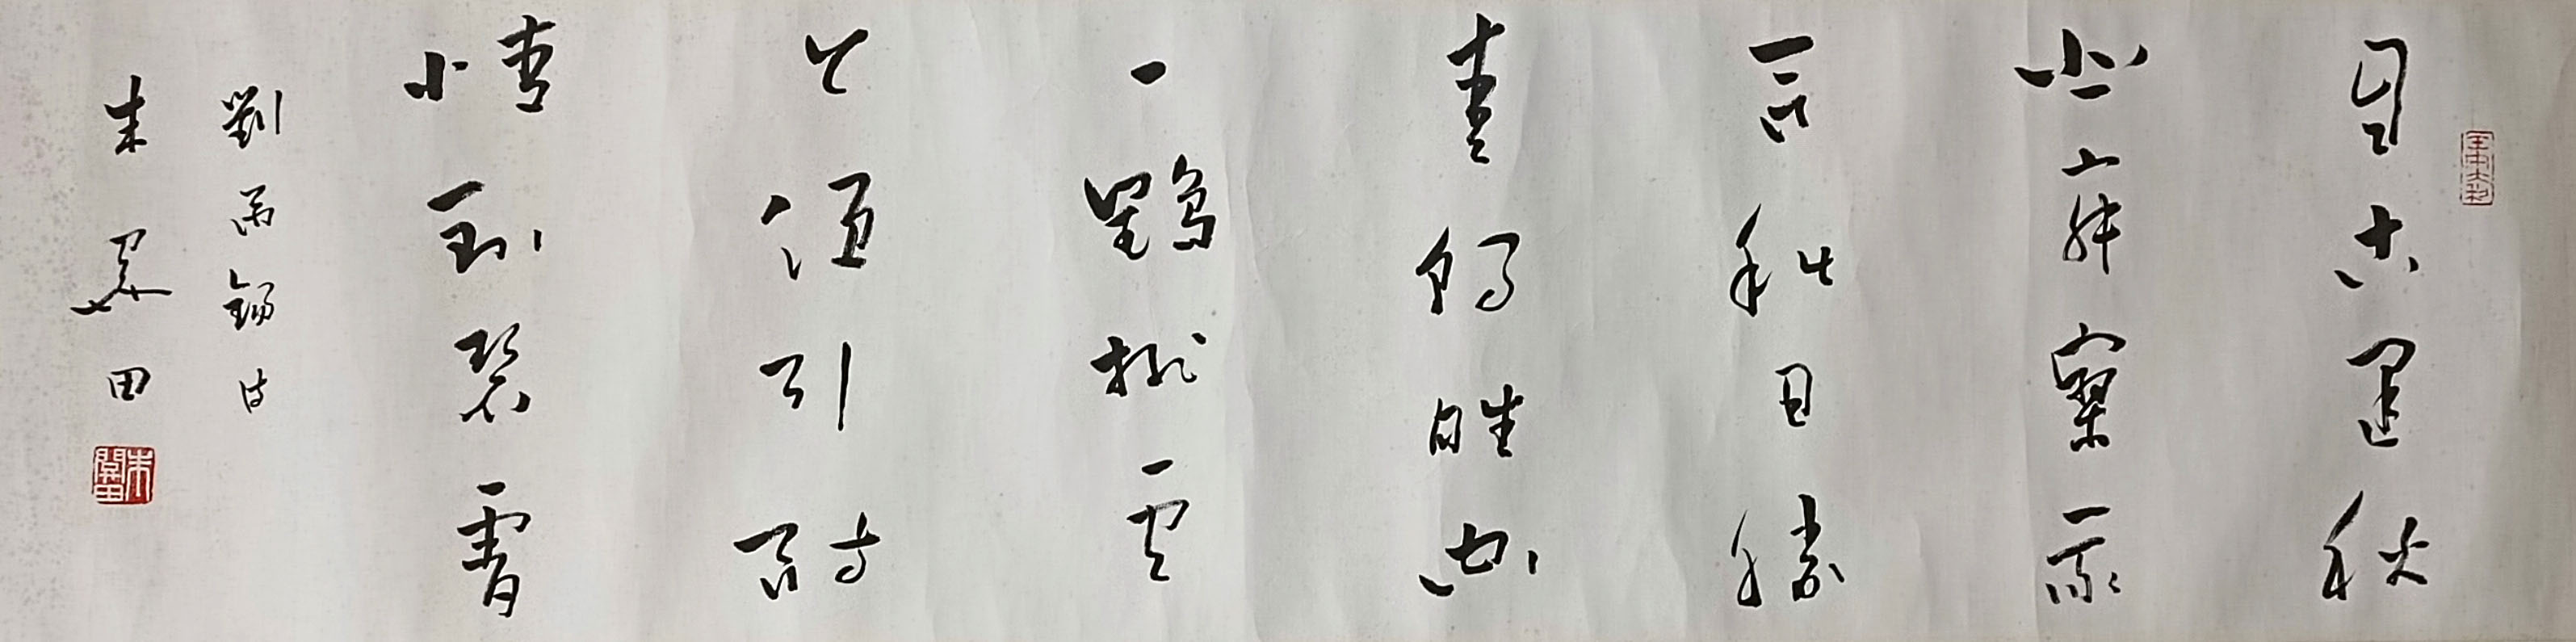 自古逢秋
悲寂寥我
言秋日勝
春朝晴空
一鶴排雲
上便引詩
情到碧霄
劉禹錫詩
朱關田
朱關田